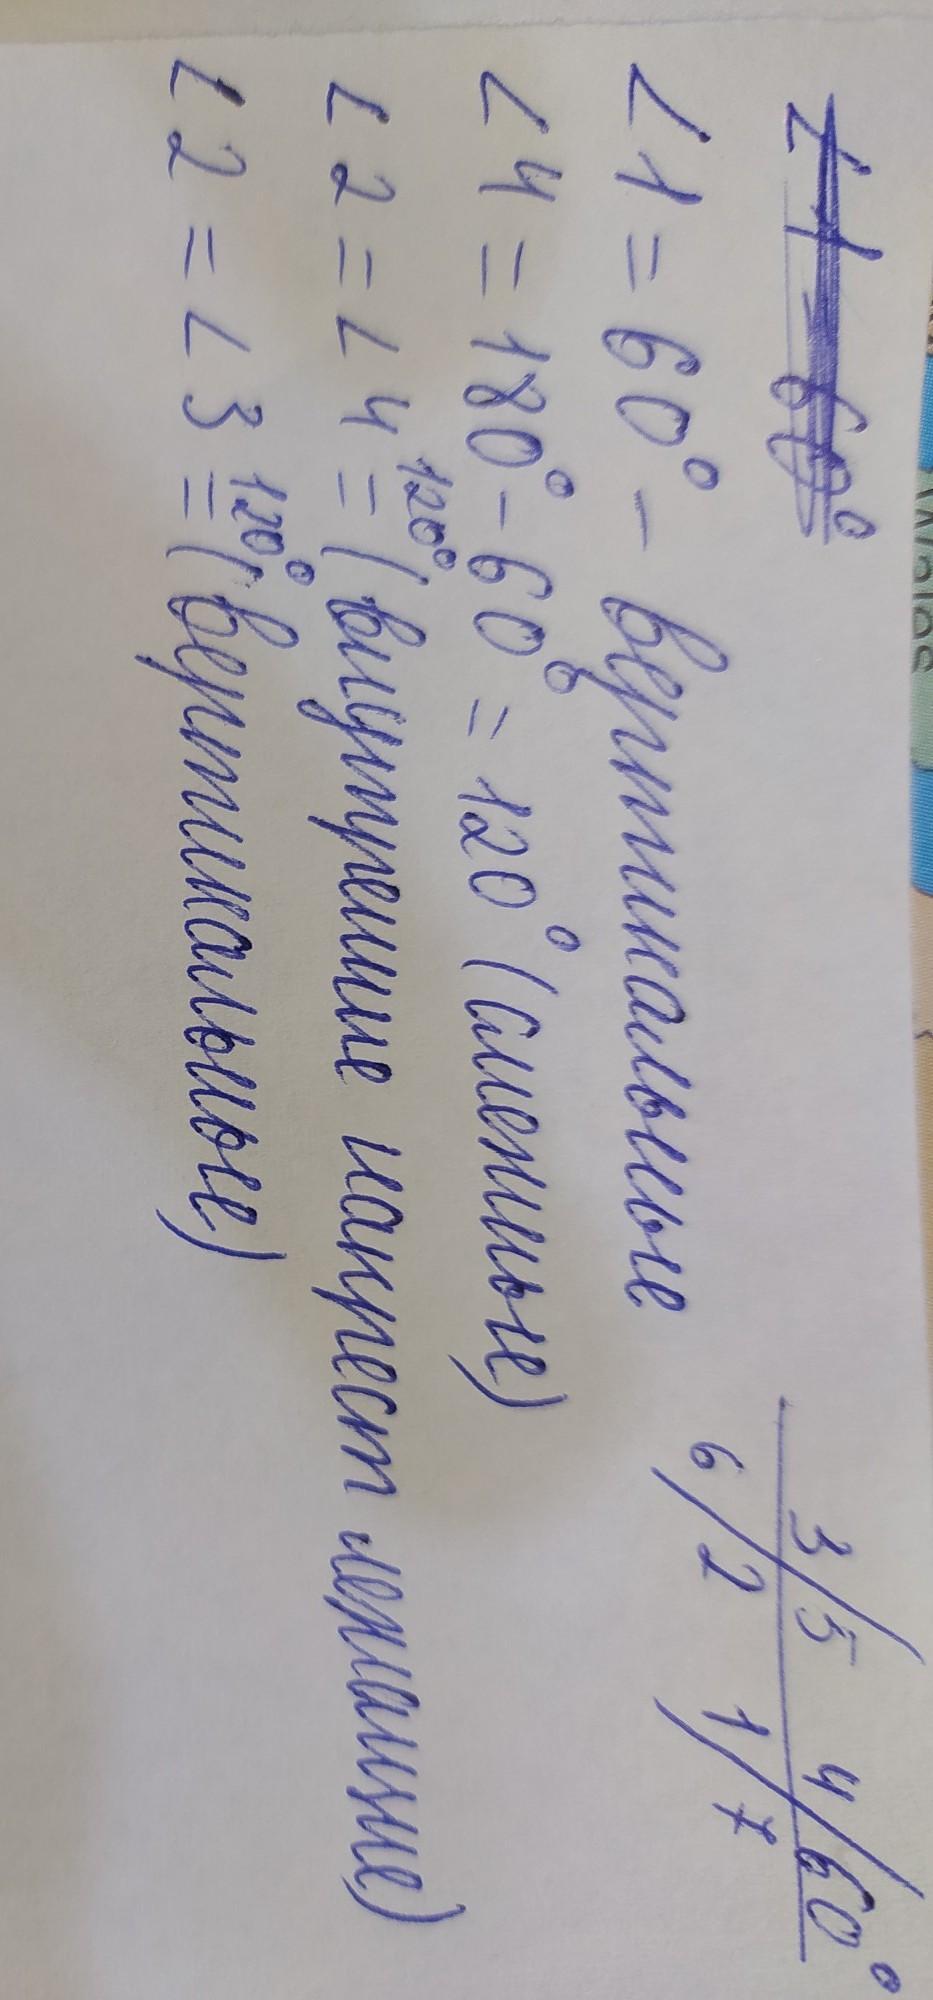 ∠1 = 60° - вертикальные
∠4 = 180° - 60° = 120° (смежные)
∠2 = ∠4 = 120° (внутрение накрест лежащие)
∠2 = ∠3 = 120° (вертикальные)
3 5 4 60°
6 2 1 7
Wales